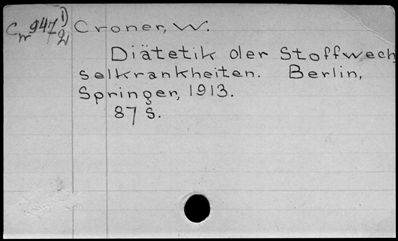 Croner, W.
Diätetik der Stoffwech
selkrankheiten. Berlin,
Springer, 1913.
87 S.